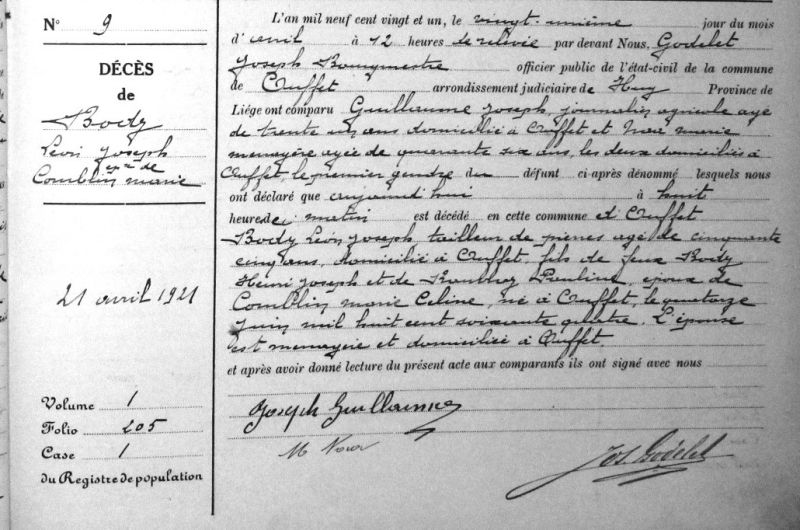 N° 9
DÉCÈS
de
Body
Léon Joseph
ép. de
Comblin marie
21 avril 1921
Volume 1
Folio 205
Case 1
du Registre de population
L'an mil neuf cent vingt et un, le vingt-unième jour du mois
d'avril à 12 heures de relevée par devant Nous, Godelet
Joseph Bourgmestre officier public de l'état-civil de la commune
de Ouffet arrondissement judiciaire de Huy Province de
Liége ont comparu Guillaume Joseph, journalier agricole agé
de trente ans domicilié à Ouffet et marie
menagère agée de quarante six ans, les deux domiciliés à
Ouffet, le premier gendre du défunt ci-après dénommé lesquels nous
ont déclaré que aujourd'hui à huit
heures du matin est décédé en cette commune et Ouffet
Body Léon Joseph, tailleur de pierres agé de cinquante
cinq ans, domicilié à Ouffet, fils de feux Body
Henri Joseph et de Pauline, époux de
Comblin marie Celine, né à Ouffet, le quatorze
Juin mil huit cent soixante quatre. L'épouse
est menagère et domiciliée à Ouffet
et après avoir donné lecture du présent acte aux comparants ils ont signé avec nous
Joseph Guillaume
M
Jos. Godelet